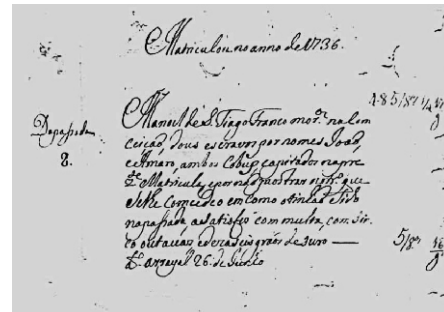 Matriculou no anno de 1736.
Dapassada
8.
Manoel de S. Tiago Franco mor.or na Con
ceição, dous escravos por nomes João,
e Amaro, ambos Cobus capitados na pre
z.te Matricula, e por não mostrar
Comisseo em como os tinha tido
na passada, a satisfes com multa, com sin
co outavas, e dezaseis grãos de ouro —
D.o Arrayal 26 de Junho
5/8.as 16